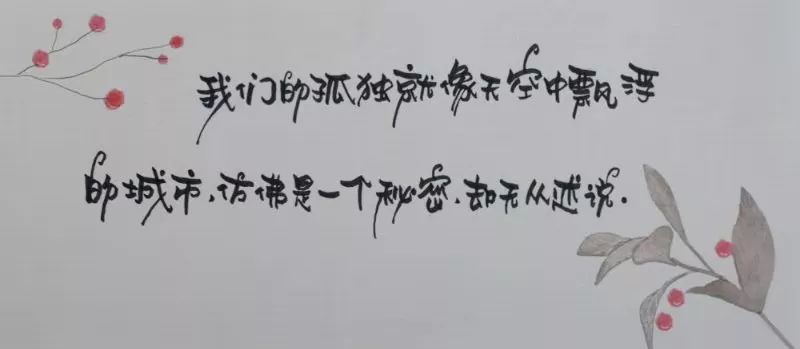 我们的孤独就像天空中飘浮
的城市,仿佛是一个秘密,却无从述说.